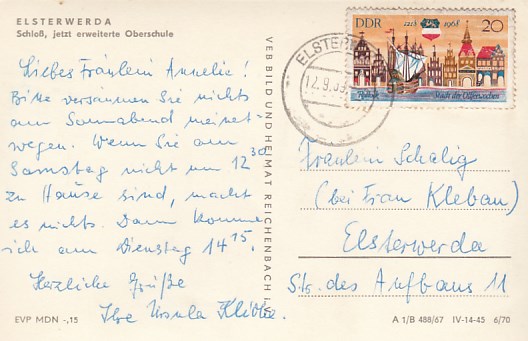 ELSTERWERDA
Schloß, jetzt erweiterte Oberschule
Liebes Fräulein Annelie!
Bitte versäumen Sie nichts
am Sonnabend meinet-
wegen. Wenn Sie am
Samstag nicht um 12 30
zu Hause sind, macht
es nichts. Dann komme
ich am Dienstag 14 15.
Herzliche Grüße
Ihre Ursula
EVP MDN -,15
VEB BILD UND HEIMAT REICHENBACH I. V.
DDR 1218 1968 20
Stadt der Ostseewochen
ELSTER
12.9.
Fräulein Schalig
(bei Frau Klebau)
Elsterwerda
Str. des Aufbaus 11
A 1/B 488/67 IV-14-45 6/70